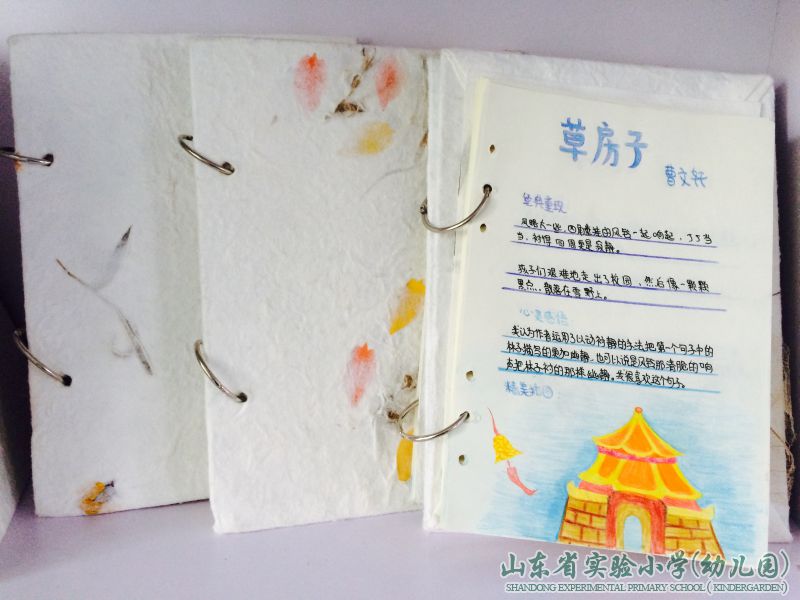 草房子
曹文轩
经典重现
风略大一些，四角悬挂的风铃一起响起，丁丁当
当，衬得四周更是寂静。
孩子们艰难地走出了校园，然后像一颗颗
黑点，散落在雪野上。
心灵感悟
我认为作者运用了以动衬静的手法把第一个句子中的
林子描写的更加幽静，也可以说是风铃那清脆的响
声把林子衬的那样幽静。我很喜欢这个句子。
精美插图
山东省实验小学(幼儿园)
SHANDONG EXPERIMENTAL PRIMARY SCHOOL ( KINDERGARDEN)